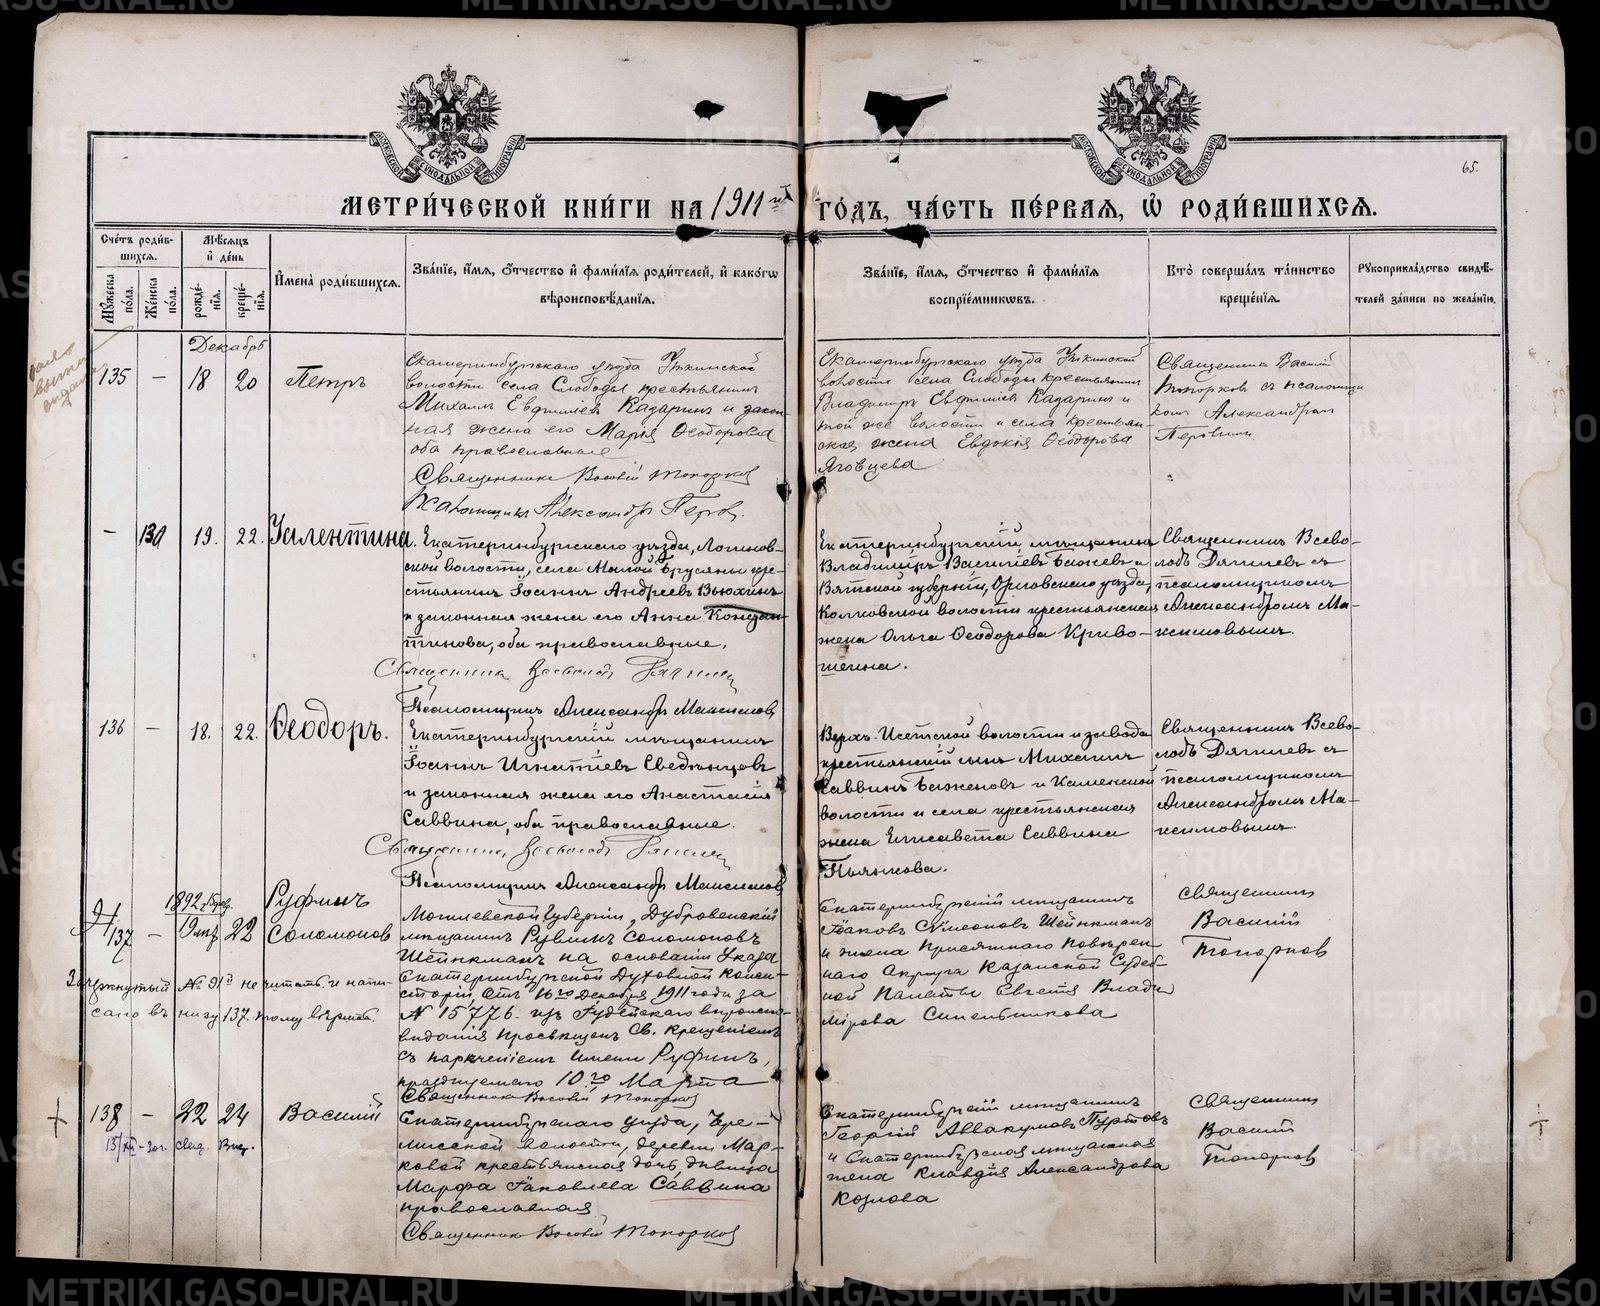 METRIKI.GASO-URAL.RU
65.
МОСКОВСКОЙ СѴНОДАЛЬНОЙ ТИПОГРАФІИ
МОСКОВСКОЙ СѴНОДАЛЬНОЙ ТИПОГРАФІИ
МЕТРИ́ЧЕСКОЙ КНИ́ГИ НА 1911й ГО́ДЪ, ЧА́СТЬ ПЕ́РВАЯ, Ѽ РОДИ́ВШИХСЯ.
Сче́тъ роди́в-
шихся.
Му́жеска по́ла.
Же́нска по́ла.
Мѣ́сяцъ
и҆ де́нь
рожде́-нія.
креще́-нія.
И҆мена̀ роди́вшихся.
Зва́нїе, и҆́мя, ѻ҆́тчество и҆ фами́лїя роди́телей, и҆ како́гѡ
вѣроисповѣ́данїя.
Зва́нїе, и҆́мя, ѻ҆́тчество и҆ фами́лїя
воспрїе́мниковъ.
Кто̀ соверша́лъ та́инство
креще́нїя.
Рꙋкоприкла́дство свидѣ́-
телей за́писи по жела́нїю.
Декабрь
135 — 18 20 Петръ
Екатеринбургскаго уѣзда Уткинской
волости села Слободы крестьянинъ
Михаилъ Евфиміевъ Казаринъ и закон
ная жена его Марія Ѳеодорова
оба православные
Священникъ Василій Топорков
Псаломщикъ Александръ Перов.
Екатеринбургскаго уѣзда Уткинской
волости села Слободы крестьянинъ
Владиміръ Евфиміевъ Казаринъ и
той же волости и села крестьян-
ская жена Евдокія Ѳеодорова
Яговцева
Священникъ Василій
Топорков съ псаломщи
комъ Александром
Перовымъ
— 130 19. 22. Валентина.
Екатеринбургскаго уѣзда, Логинов-
ской волости, села Малой Брусяны кре-
стьянинъ Іоаннъ Андреевъ Вьюхинъ
и законная жена его Анна Констан-
тинова, оба православные.
Священникъ Всеволод Дягилев
Псаломщикъ Александръ Максимов
Екатеринбургскій мѣщанинъ
Владиміръ Василіевъ Бажевъ и
Вятской губерніи, Орловскаго уѣзда,
Колковской волости крестьянская
жена Ольга Ѳеодорова Криво-
шеина.
Священникъ Всево-
лодъ Дягилев съ
псаломщикомъ
Александромъ Ма-
ксимовымъ.
136 — 18. 22. Ѳеодоръ.
Екатеринбургскій мѣщанинъ
Іоаннъ Игнатіевъ Сведенцовъ
и законная жена его Анастасія
Саввина, оба православные.
Священникъ Всеволод Дягилев
Псаломщикъ Александръ Максимов
Верхъ-Исетской волости и завода
крестьянскій сынъ Михаилъ
Саввинъ Баженовъ и Каменской
волости и села крестьянская
жена Елисавета Саввина
Пьянкова.
Священникъ Всево-
лодъ Дягилев съ
псаломщикомъ
Александромъ Ма-
ксимовымъ.
1892 г.
137 — 19 22 Руфинъ
Соломоновъ
Зачеркнутый № 91й не читать и напи-
сано въ низу 137. тому вѣрить.
Могилевской губерніи, Дубровенскій
мѣщанинъ Рувинъ Соломоновъ
Шейнкманъ на основаніи Указа
Екатеринбургской Духовной Консис-
торіи, отъ 16го Декабря 1911 года за
№ 15776. изъ Іудейскаго вѣроиспо-
вѣданія просвѣщенъ Св. Крещеніемъ
съ нареченіемъ имени Руфинъ,
празднуемаго 10.го Марта
Священникъ Василій Топорков
Екатеринбургскій мѣщанинъ
Іаковъ Сѵмеоновъ Шейнкманъ
и жена Присяжнаго повѣрен
наго Округа Казанской Судеб-
ной Палаты Евгенія Влади
мірова Синельникова
Священникъ
Василій
Топорков
138 — 22 24 Василій
Екатеринбургскаго уѣзда, Бре-
лисской волости, деревни Мар-
ковой крестьянская дочь, дѣвица
Марфа Іаковлева Саввина
православная
Священникъ Василій Топорков
Екатеринбургскій мѣщанинъ
Георгій Аввакумовъ Пуртовъ
и Екатеринбургская мѣщанская
жена Клавдія Александрова
Козлова
Священникъ
Василій
Топорков